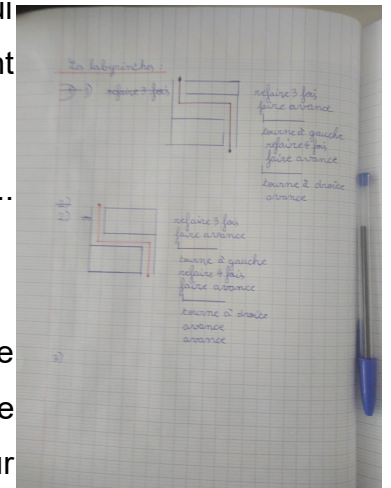 ul
nt
..
e
e
ur
Les labyrinthes :
1) refaire 3 fois
refaire 3 fois
faire avance
tourne à gauche
refaire 4 fois
faire avance
tourne à droite
avance
2)
refaire 3 fois
faire avance
tourne à gauche
refaire 4 fois
faire avance
tourne à droite
avance
avance
3)